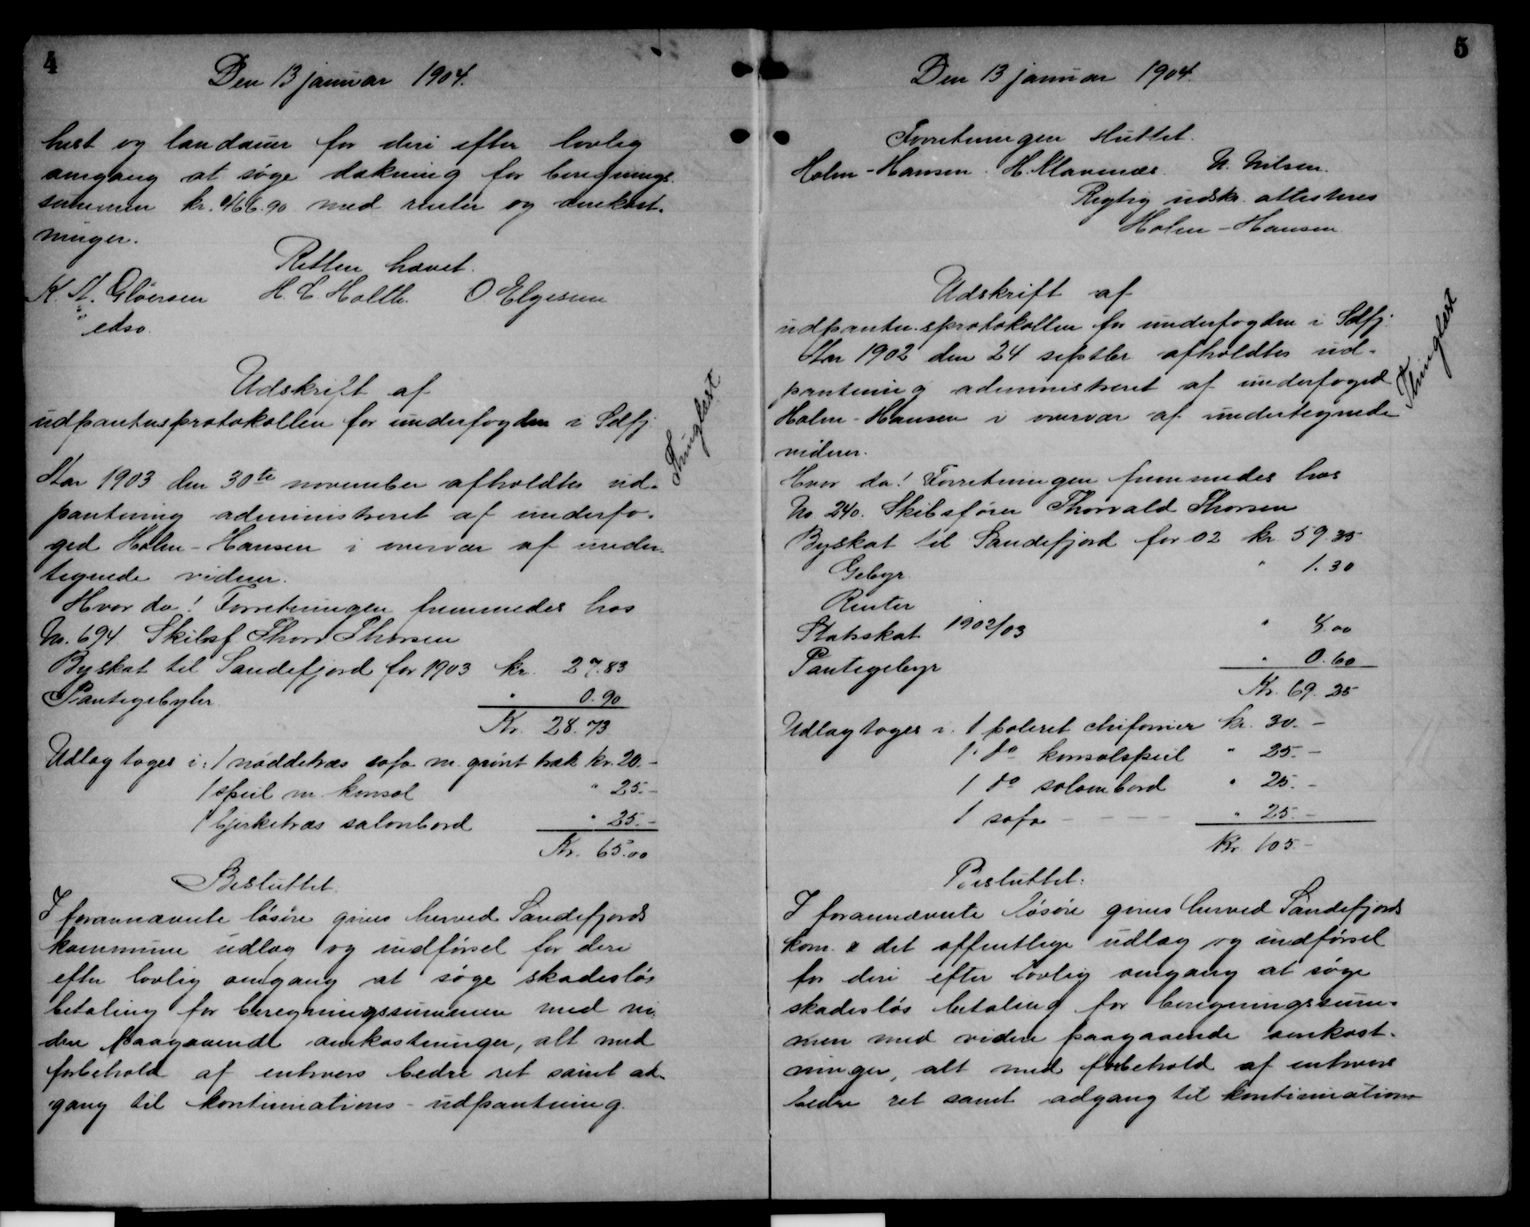 4
Den 13 januar 1904.
hest og landauer for deri efter lovlig
omgang at søge dækning for beregnings-
summen kr. 466.90 med renter og omkost-
ninger.
Retten hævet.
K. A. Gløersen H. C. Holth O Elgesem
edsv.
Udskrift af
udpantnsprotokollen for underfogden i Sdfj.
Thinglæst
Aar 1903 den 30te november afholdtes ud-
pantning administreret af underfo-
ged Holm-Hansen i overvær af under-
tegnede vidner.
Hvor da! Forretningen fremmedes hos
No. 694 Skibsf. Thorv. Thorsen
Byskat til Sandefjord for 1903 kr. 27.83
Pantegebyhr " 0.90
Kr. 28.73
Udlæg toges i: 1 nøddetræs sofa m. grønt træk kr. 20.-
1 speil m. konsol " 25.-
1 bjerketræs salonbord " 25.-
Kr. 65.00
Besluttet.
I forannævnte løsøre gives herved Sandefjords
kommune udlæg og indførsel for deri
efter lovlig omgang at søge skadesløs
betaling for beregningssummen med vi-
dere paagaaende omkostninger, alt med
forbehold af enhvers bedre ret samt ad-
gang til kontinuations-udpantning.
5
Den 13 januar 1904.
Forretningen sluttet.
Holm-Hansen. H. Klavenæs. N. Nilsen.
Rigtig udskr. attesteres
Holm-Hansen
Udskrift af
udpantn.sprotokollen for underfogden i Sdfj.
Thinglæst
Aar 1902 den 24 septbr afholdtes ud-
pantning administreret af underfoged
Holm-Hansen i overvær af undertegnede
vidner.
Hvor da! Forretningen fremmedes hos
No. 240. Skibsfører Thorvald Thorsen
Byskat til Sandefjord for 02 kr 59.35
Gebyr " 1.30
Renter
Statsskat 1902/03 " 8.00
Pantegebyr " 0.60
Kr. 69.25
Udlæg toges i. 1 poleret chifonier kr. 30.-
1. do konsolspeil " 25.-
1 do salonbord " 25.-
1 sofa " 25.-
Kr. 105.-
Besluttet.
I forannævnte løsøre gives herved Sandefjords
kom. & det offentlige udlæg og indførsel
for deri efter lovlig omgang at søge
skadesløs betaling for beregningssum-
men med videre paagaaende omkost-
ninger, alt med forbehold af enhvers
bedre ret samt adgang til kontinuations